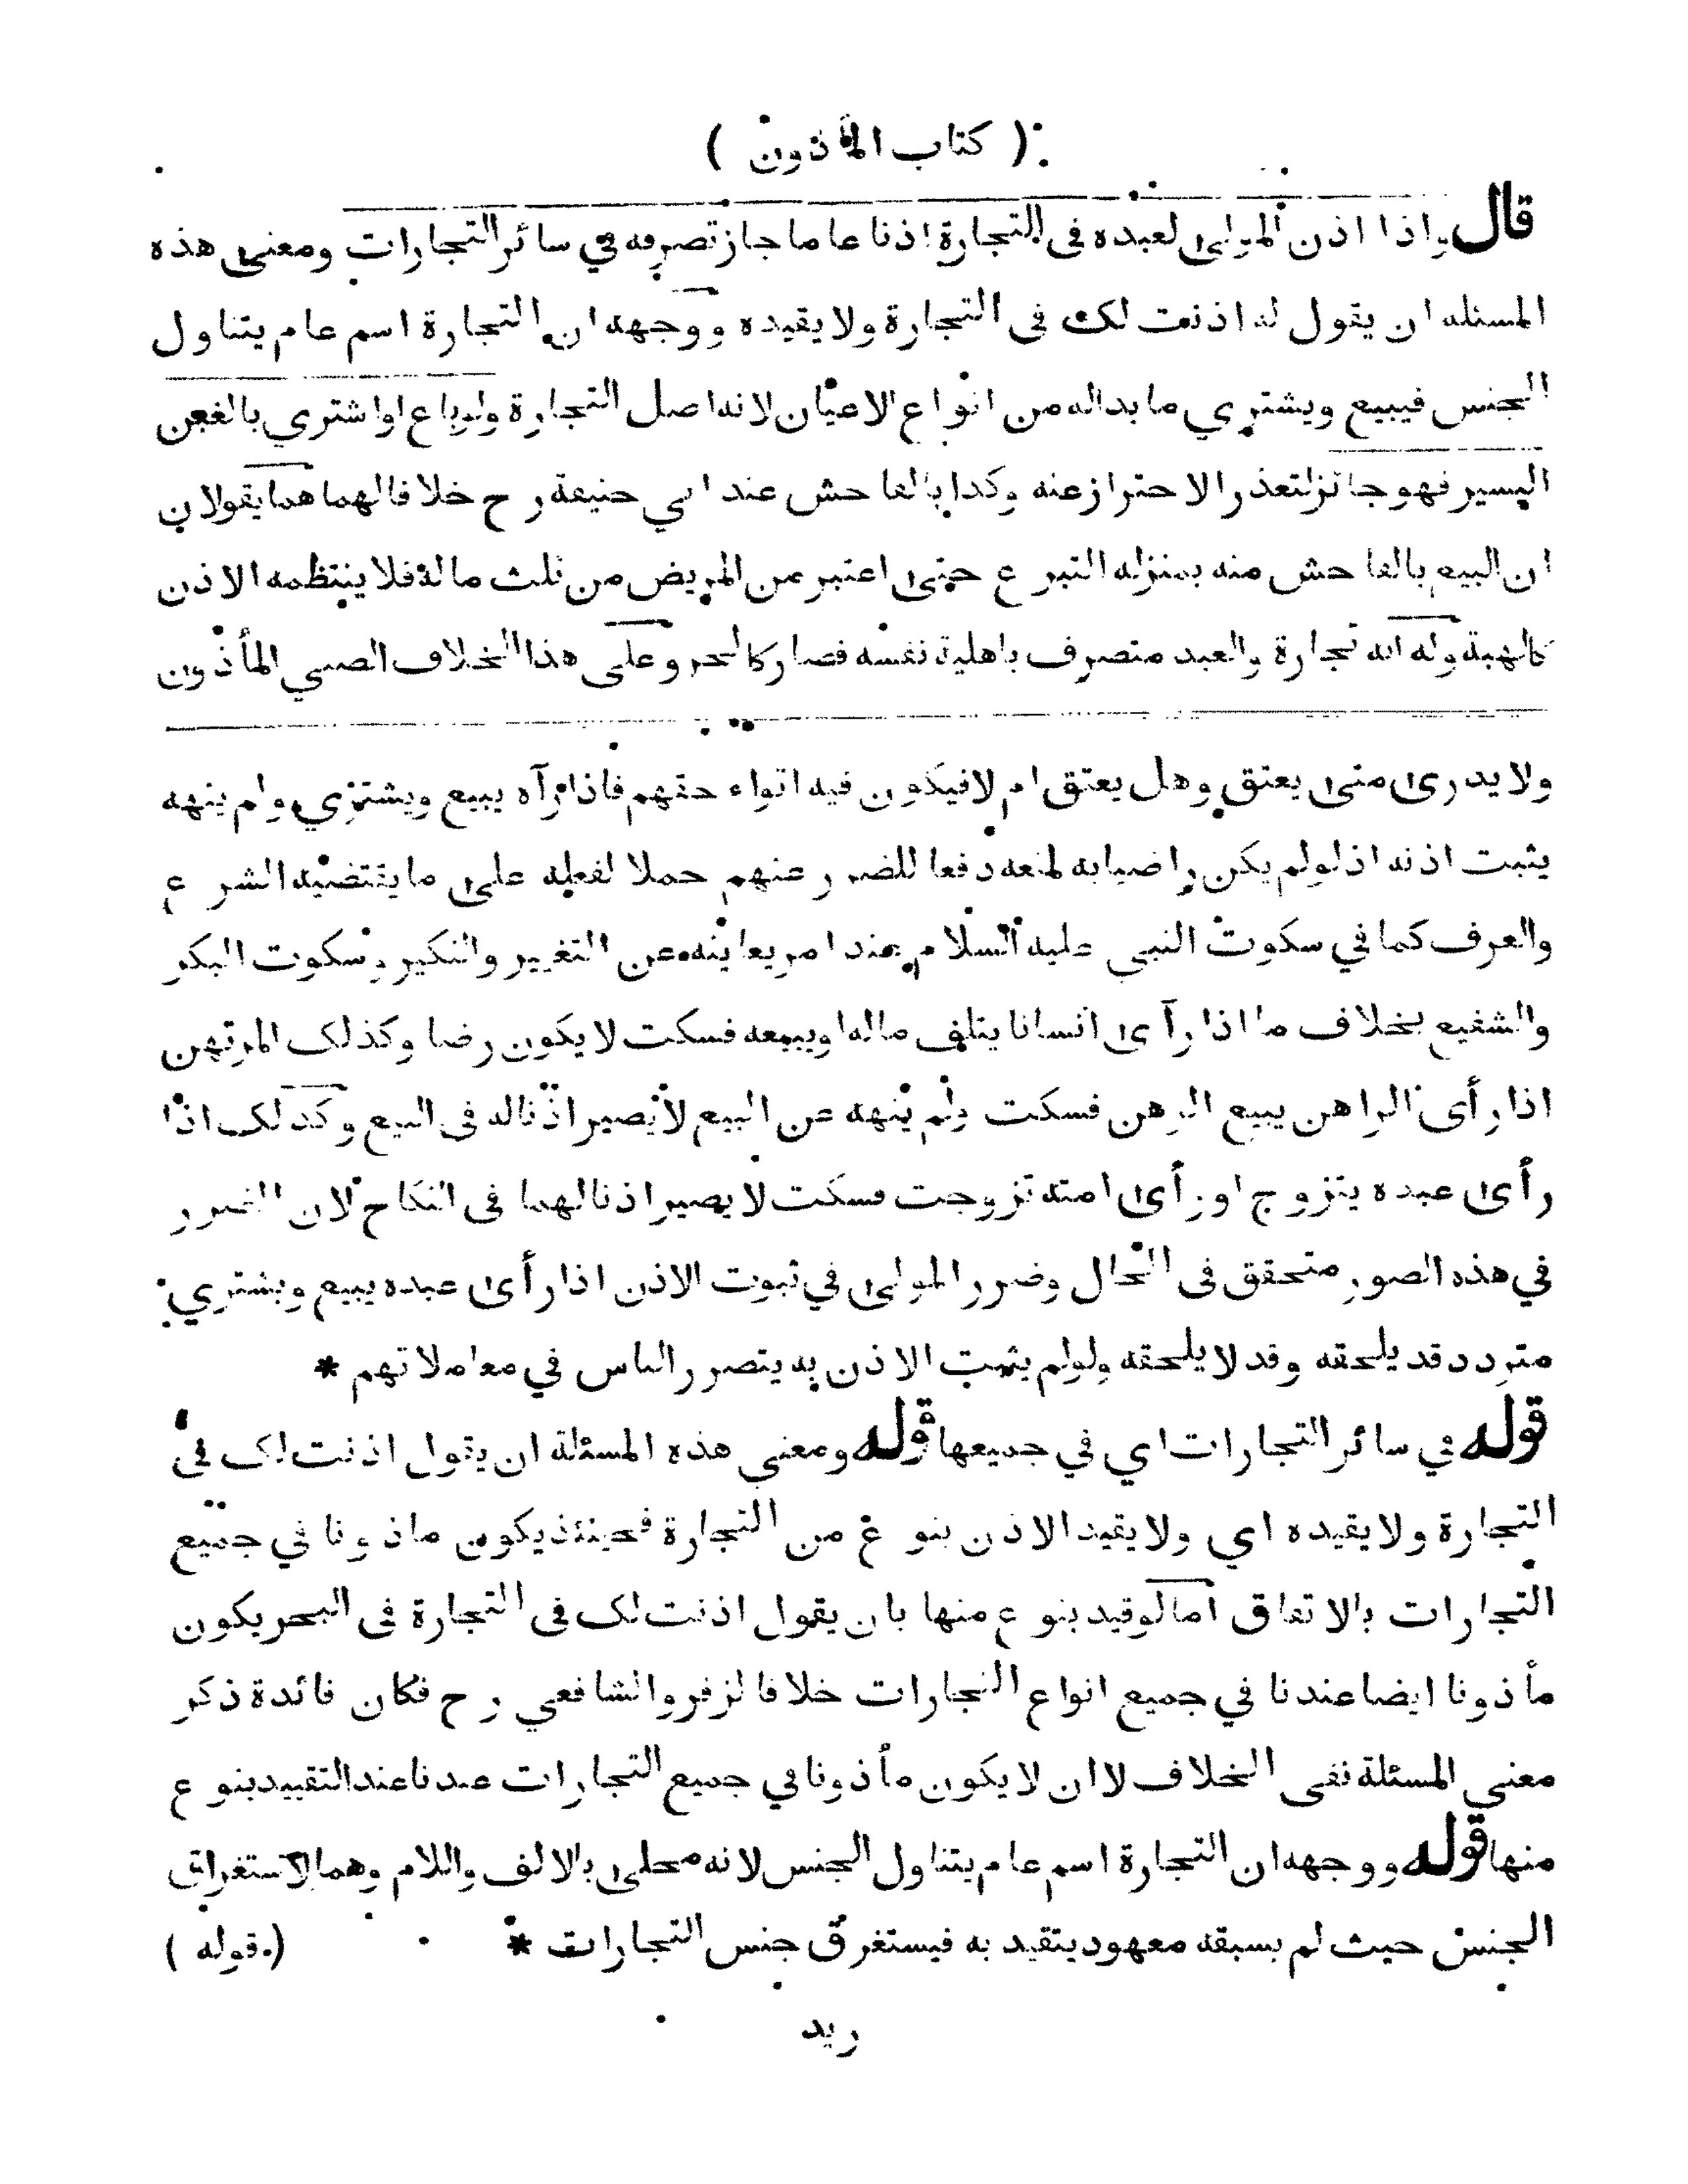 ( كتاب المأذون )
قال واذا اذن المولى لعبده فى التجارة اذنا عاما جاز تصرفه في سائر التجارات ومعنى هذه
المسئله ان يقول له اذنت لك فى التجارة ولا يقيده ووجهه ان التجارة اسم عام يتناول
الجنس فيبيع ويشتري ما بداله من انواع الاعيان لانه اصل التجارة ولو باع او اشتري بالغبن
اليسير فهو جائز لتعذر الاحتراز عنه وكذا بالفاحش عند ابي حنيفة رح خلافا لهما هما يقولان
ان البيع بالفاحش منه بمنزله التبرع حتى اعتبر من المريض من ثلث ماله فلا ينتظمه الاذن
كالهبة وله انه تجارة والعبد متصرف باهلية نفسه فصار كالحر وعلى هذا الخلاف الصبي المأذون
ولا يدرى متى يعتق وهل يعتق ام لا فيكون فيه اتواء حقهم فاذا رآه يبيع ويشتري ولم ينهه
يثبت اذنه اذ لو لم يكن راضيا به لمنعه دفعا للضرر عنهم حملا لفعله على ما يقتضيه الشرع
والعرف كما في سكوت النبي عليه السلام عند امر يعاينه عن التغيير والنكير وسكوت البكر
والشفيع بخلاف ما اذا رأى انسانا يتلف ماله او يبيعه فسكت لا يكون رضا وكذلك المرتهن
اذا رأى الراهن يبيع الرهن فسكت ولم ينهه عن البيع لا يصير اذنا له فى البيع وكذلك اذا
رأى عبده يتزوج او رأى امته تزوجت فسكت لا يصير اذنا لهما فى النكاح لان الضرر
في هذه الصور متحقق فى الحال وضرر المولى في ثبوت الاذن اذا رأى عبده يبيع ويشتري
متردد قد يلحقه وقد لا يلحقه ولو لم يثبت الاذن به يتضرر الناس في معاملاتهم *
قوله في سائر التجارات اي في جميعها قوله ومعنى هذه المسئلة ان يقول اذنت لك في
التجارة ولا يقيده اي ولا يقيد الاذن بنوع من التجارة فحينئذ يكون ماذونا في جميع
التجارات بالاتفاق اما لو قيد بنوع منها بان يقول اذنت لك فى التجارة فى البحر يكون
مأذونا ايضا عندنا في جميع انواع التجارات خلافا لزفر والشافعي رح فكان فائدة ذكر
معنى المسئلة نفى الخلاف لا ان لا يكون مأذونا في جميع التجارات عندنا عند التقييد بنوع
منها قوله ووجهه ان التجارة اسم عام يتناول الجنس لانه محلى بالالف واللام وهما لاستغراق
الجنس حيث لم يسبقه معهود يتقيد به فيستغرق جنس التجارات *
( قوله )
ريد